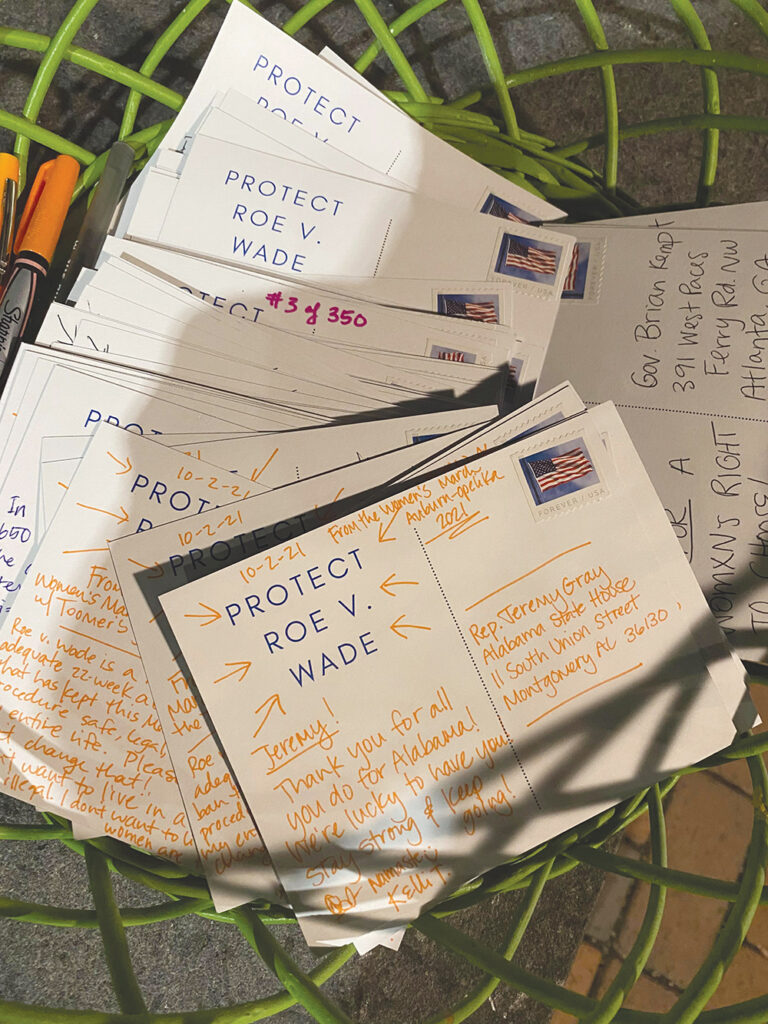 PROTECT
ROE V.
PROTECT
ROE V.
WADE
#3 of 350
Sharpie
Gov. Brian Kempt
391 West Paces
Ferry Rd. NW
Atlanta, GA
A
WOMXN'S RIGHT
TO CHOOSE!
In
PROTECT
10-2-21
PROTECT
From
Women's Mar
w/ Toomer's
Roe v. Wade is a
adequate 22-week a
that has kept this
procedure safe, legal
entire life. Pleas
t change that!
want to live in a
illegal. I dont want to
women are
10-2-21
PROTECT
Roe
adeq
ban
proced
my en
chang
10-2-21
From the Women's March
Auburn-Opelika
2021
PROTECT
ROE V.
WADE
FOREVER / USA
Rep. Jeremy Gray
Alabama State House
11 South Union Street
Montgomery AL 36130
Jeremy!
Thank you for all
you do for Alabama!
We're lucky to have you
Stay strong & keep
going!
Namaste
Kelli T.